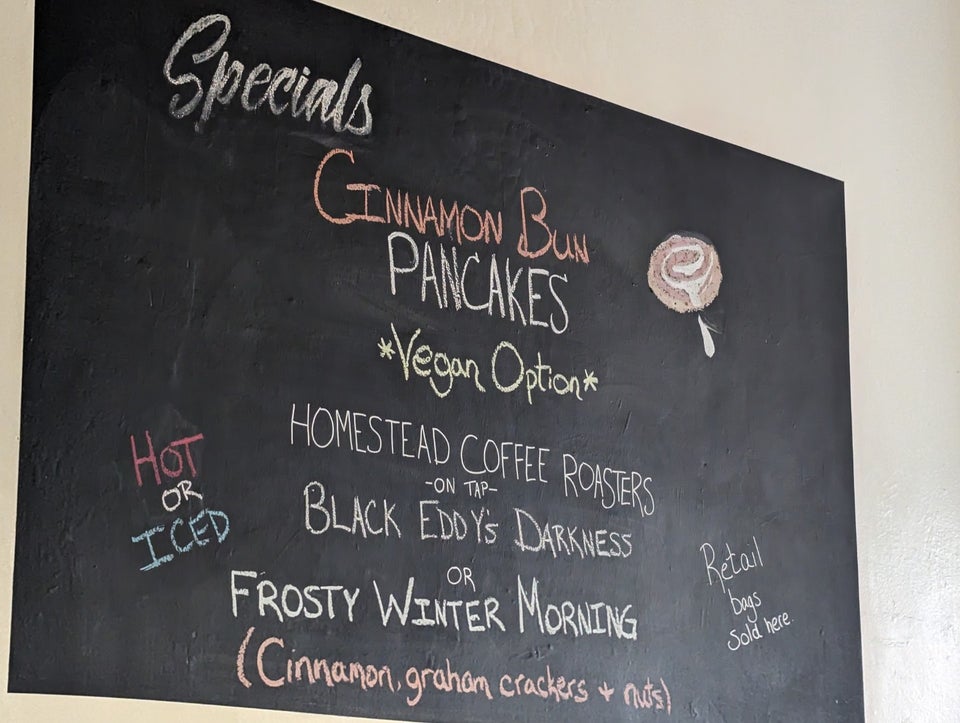 Specials
CINNAMON BUN
PANCAKES
*Vegan Option*
HOMESTEAD COFFEE ROASTERS
-ON TAP-
BLACK EDDY'S DARKNESS
OR
FROSTY WINTER MORNING
(Cinnamon, graham crackers + nuts)
HOT
OR
ICED
Retail
bags
sold here.